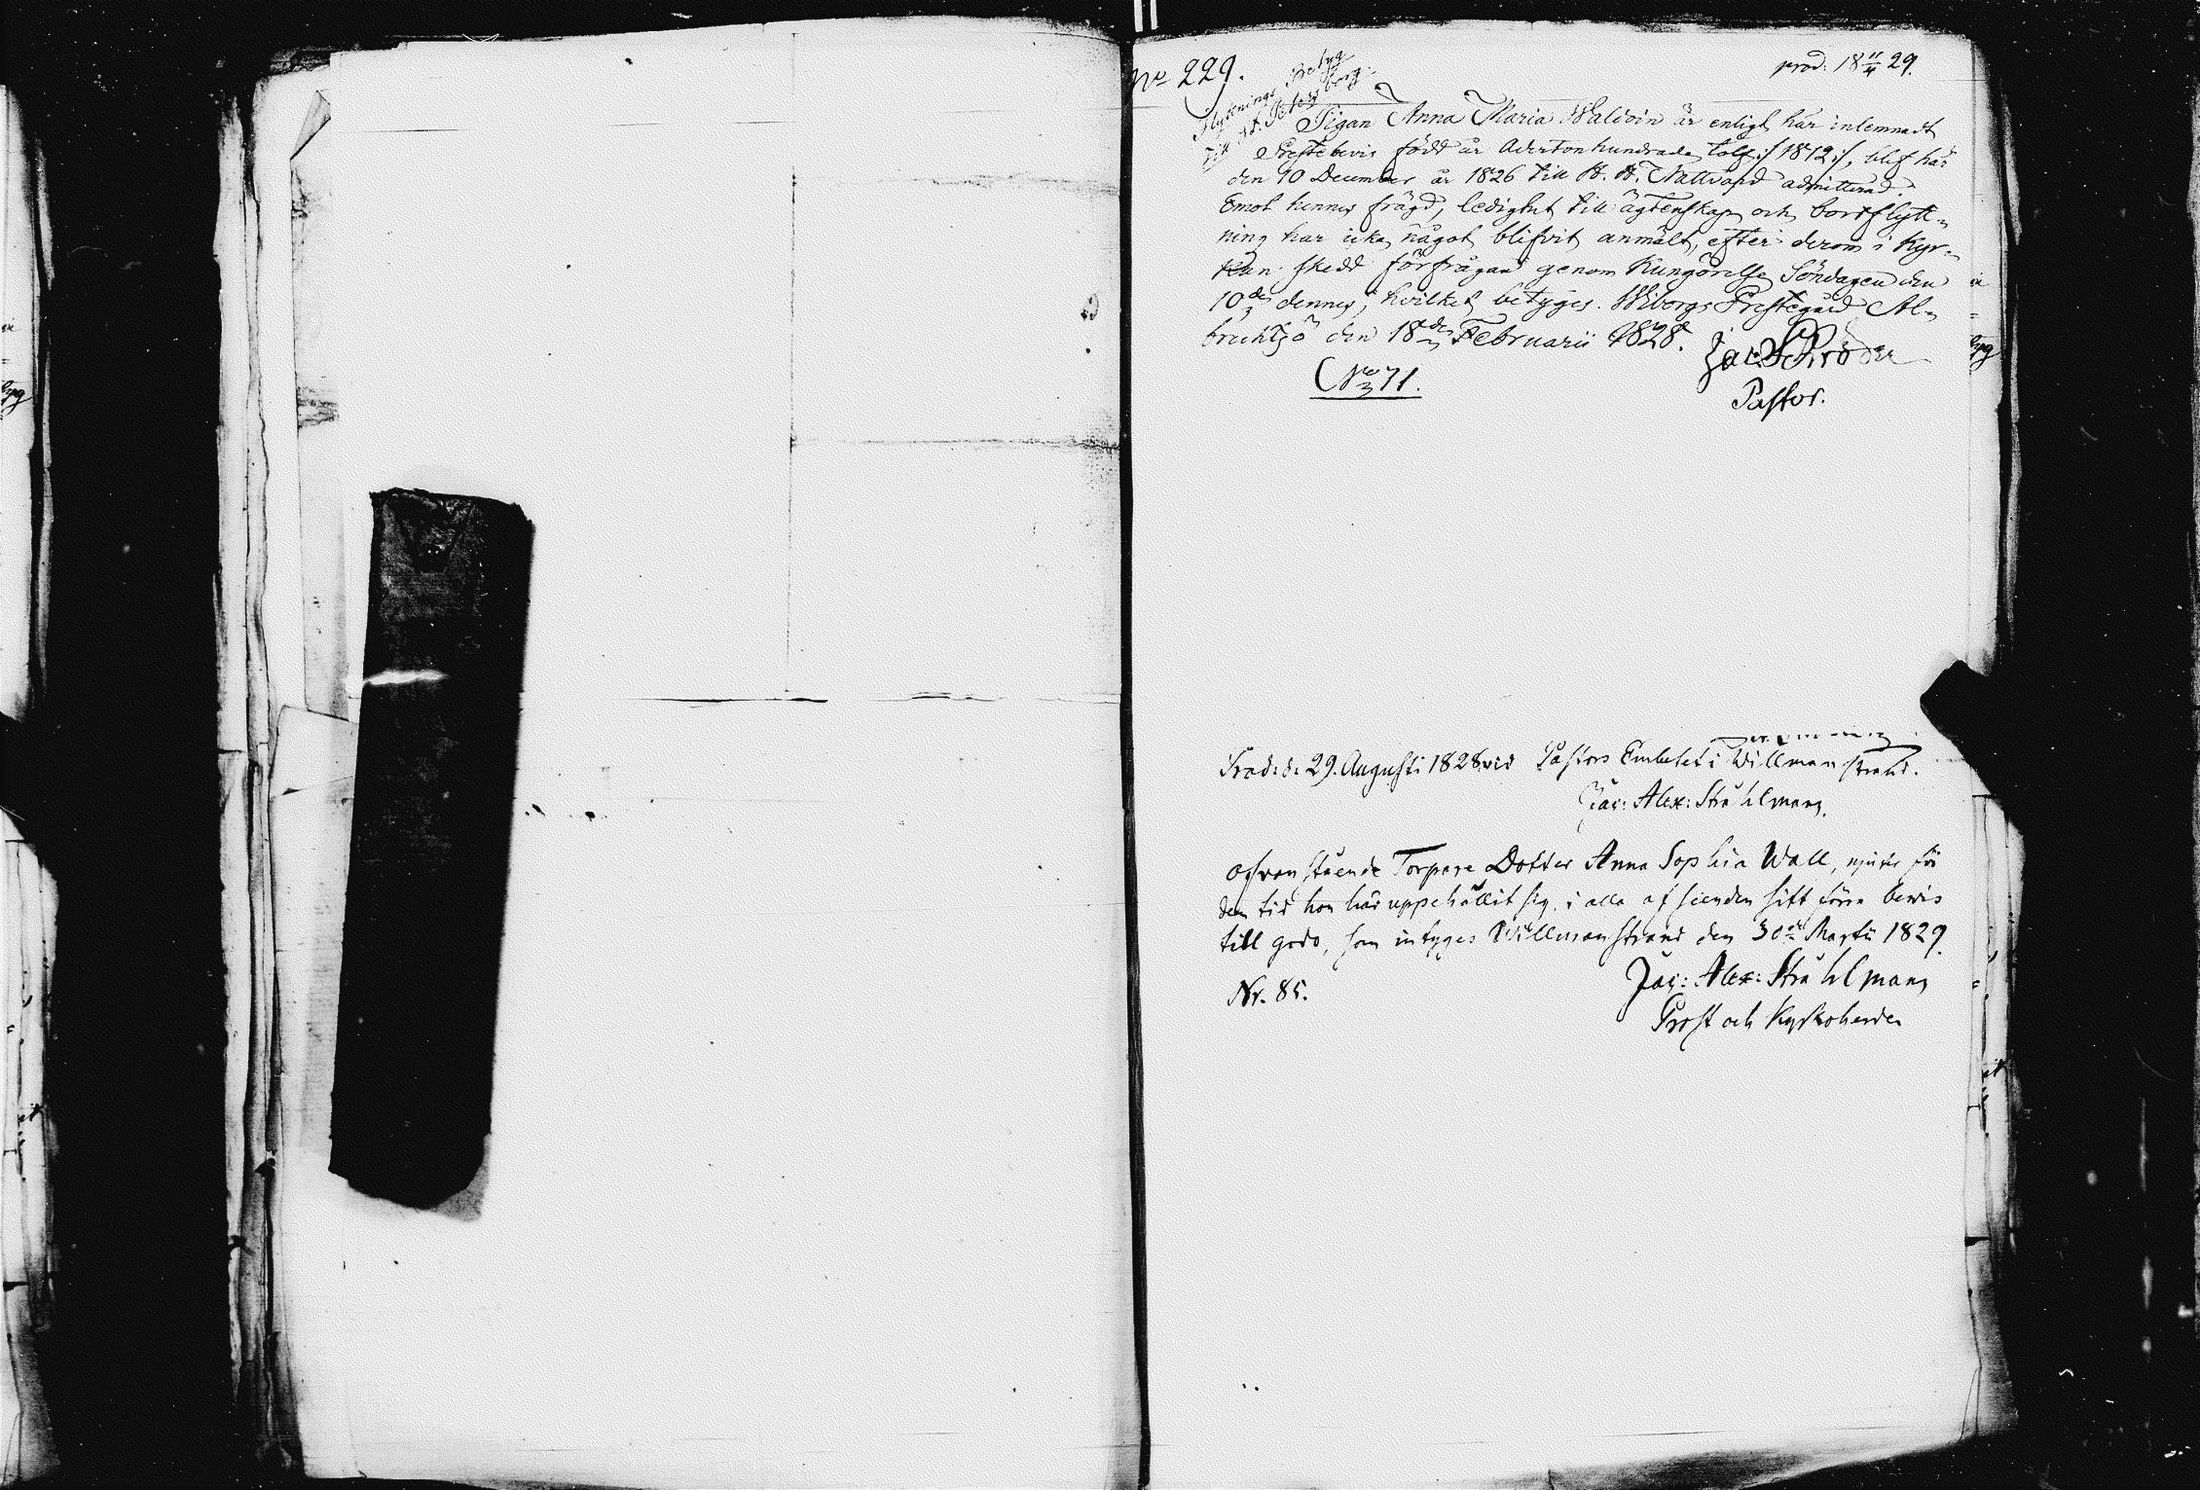 No 229.
prod. 18 11/4 29.
Flyttnings Betyg
till St. Petersborg.
Pigan Anna Maria Walldin är enligt här inlemnadt
Prestebevis född år Adertonhundrade tolf /: 1812 :/, blef här
den 10 December år 1826 till H. H. Nattvard admitterad.
Emot hennes frägd, ledighet till ägtenskap och bortflytt-
ning har icke något blifvit anmält, efter derom i Kyr-
kan skedd förfrågan genom Kungörelse Söndagen den
10de dennes; hvilket betyges. Wiborgs Prestegård Al-
brechtsö den 18de Februarii 1828.
Jac Schröder
(No 71.
Pastor.
Prod. d. 29. Augusti 1828 vid Pastors Embetet i Willmanstrand.
Jac: Alex: Stråhlmann.
Ofvanstående Torpare Dotter Anna Sophia Wall, njuter för
den tid hon här uppehållit sig, i alla afseenden sitt förra bevis
till godo, som intyges Willmanstrand den 30de Martii 1829.
Nr. 85.
Jac: Alex: Stråhlmann
Prost och Kyrkoherde